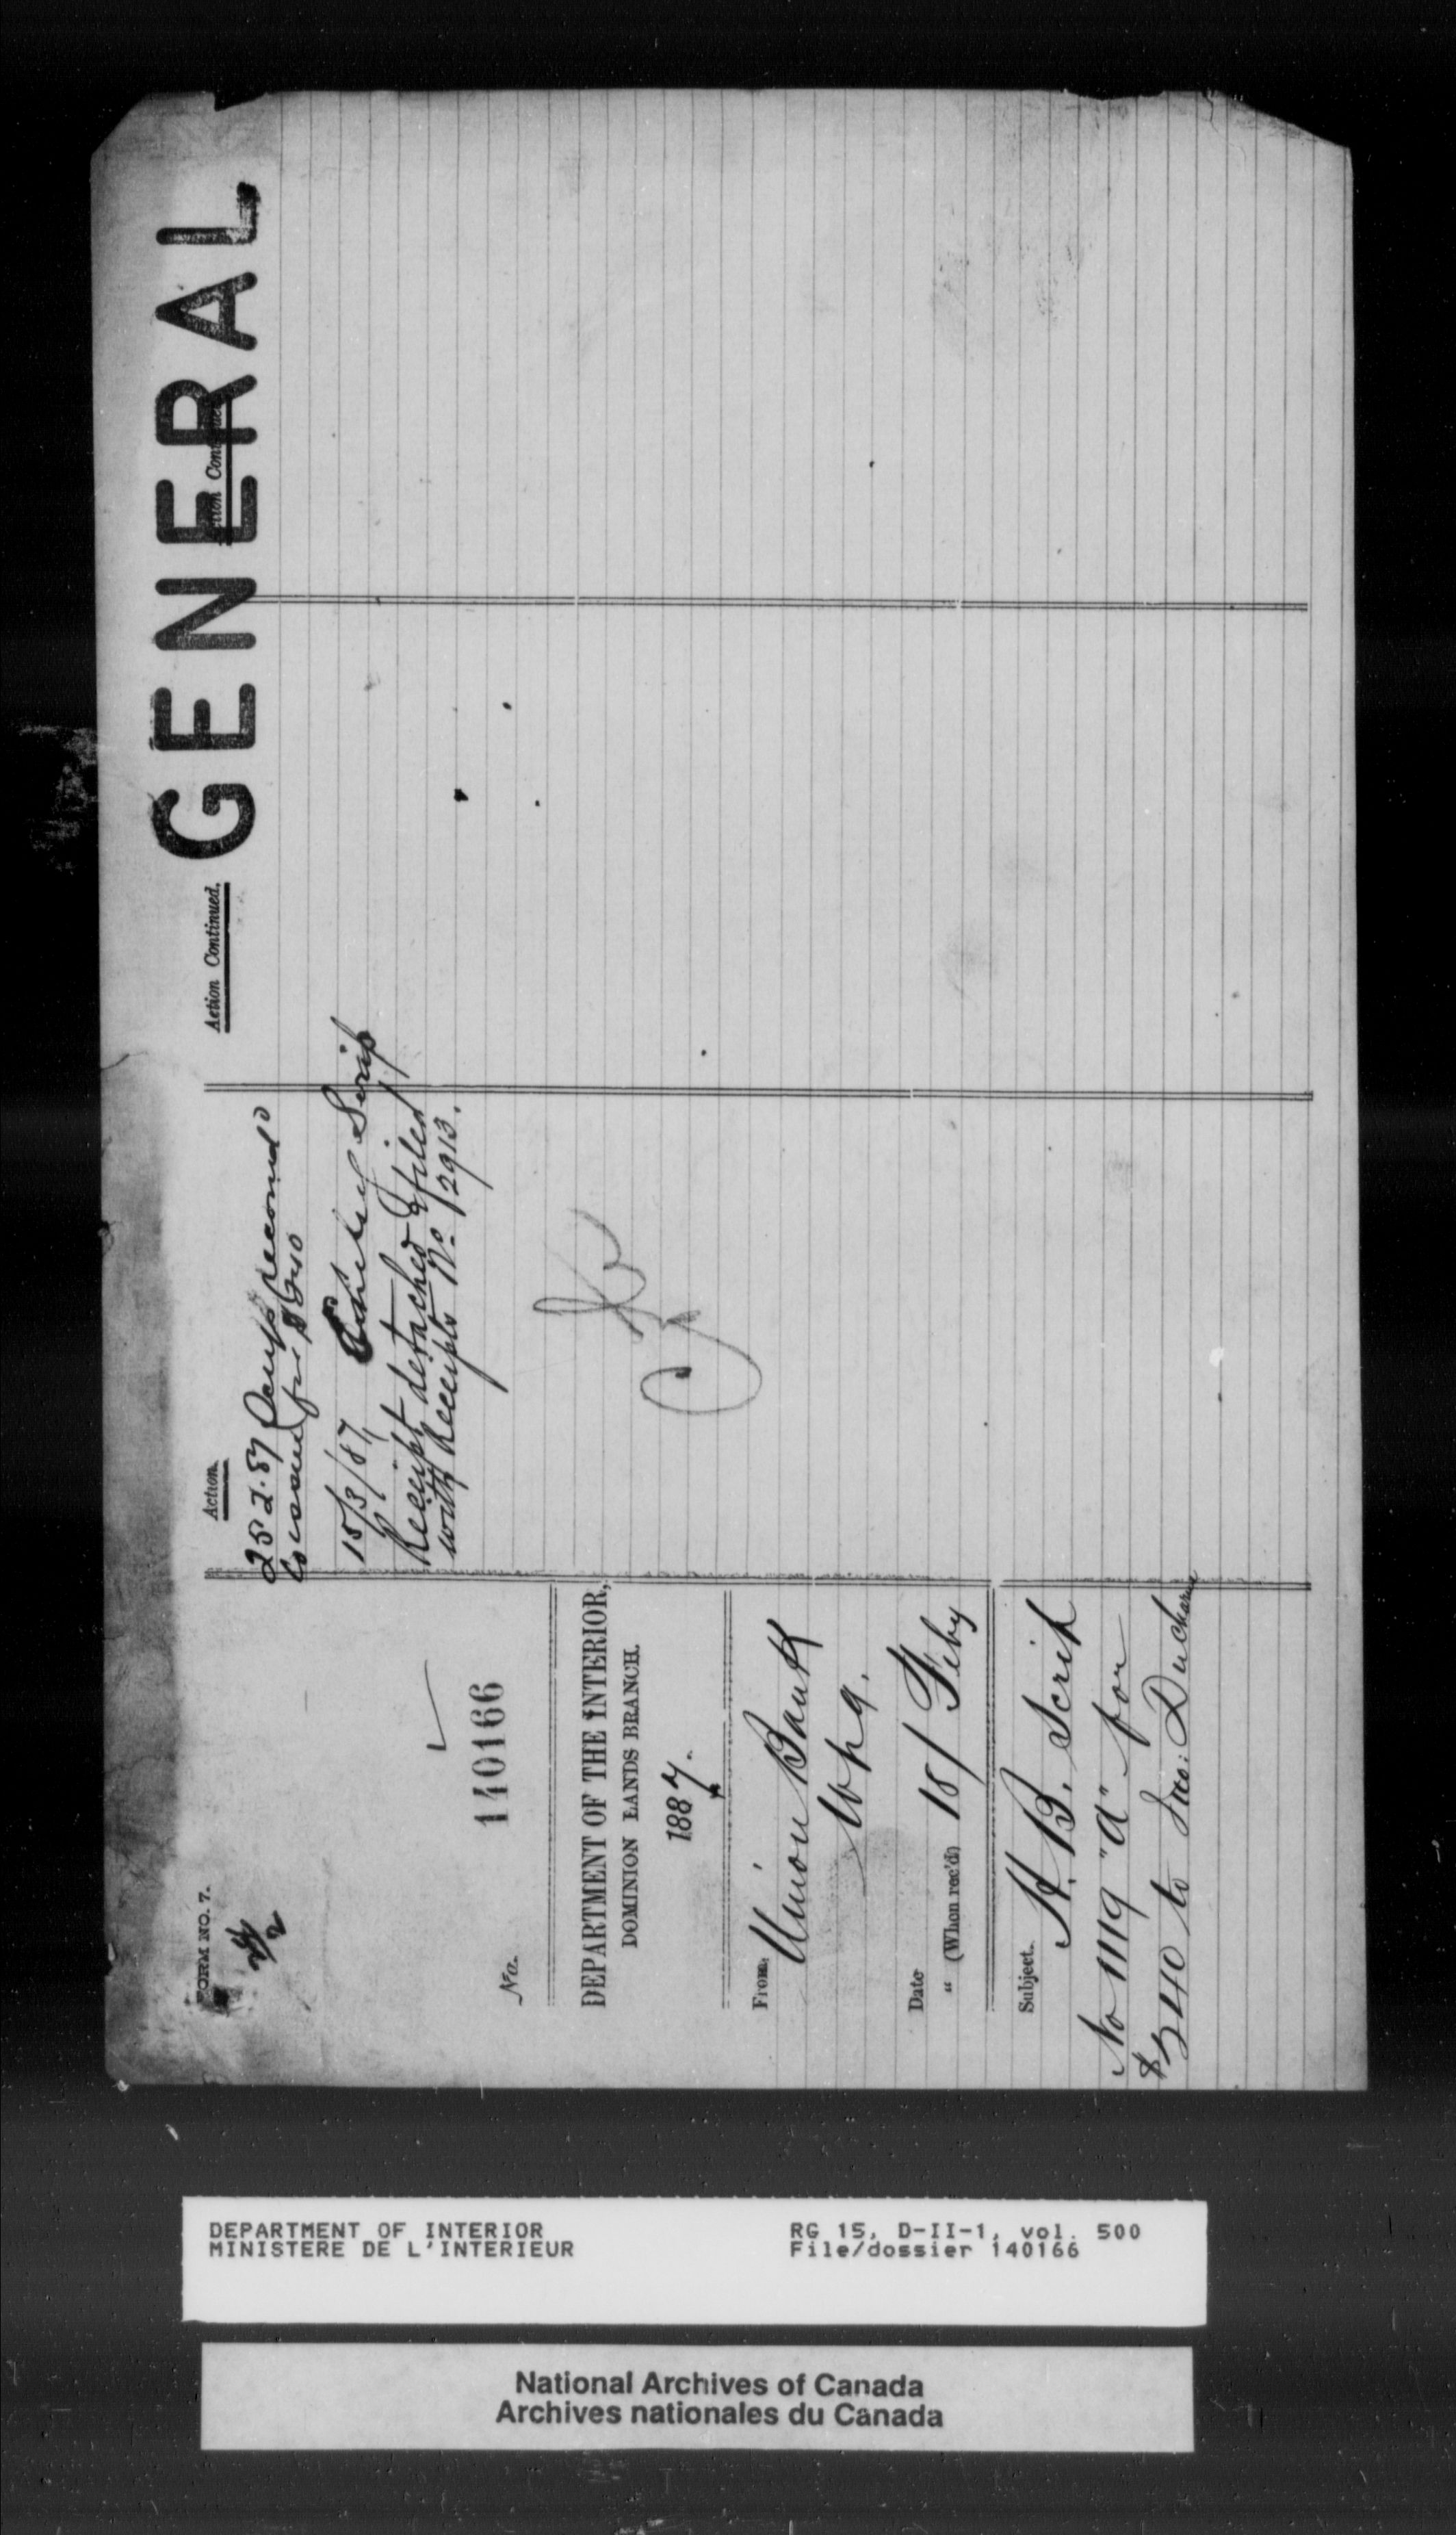 GENERAL
FORM NO. 7.
No. 140166
DEPARTMENT OF THE INTERIOR,
DOMINION LANDS BRANCH.
1887.
From, Union Bank
Wpg.
Date 18/ Feby
" (When rec'd)
Subject. H. B. Scrip
No 1119 "A" for
$240 to Jno: Ducharme
Action.
25.2.87
for $240
15/3/87, Scrip
Receipt detached & filed
with Receipts No. 12913.
Action Continued.
Action Continued.
DEPARTMENT OF INTERIOR
MINISTERE DE L'INTERIEUR
RG 15, D-II-1, vol. 500
File/dossier 140166
National Archives of Canada
Archives nationales du Canada